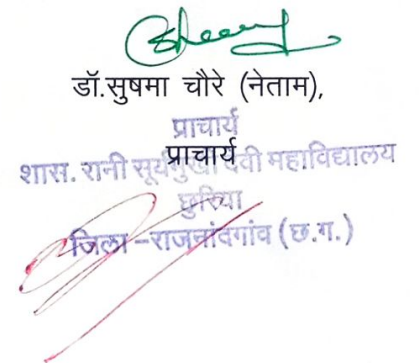 डॉ.सुषमा चौरे (नेताम),
प्राचार्य
प्राचार्य
शास. रानी सूर्यमुखी देवी महाविद्यालय
छुरिया
जिला –राजनांदगांव (छ.ग.)